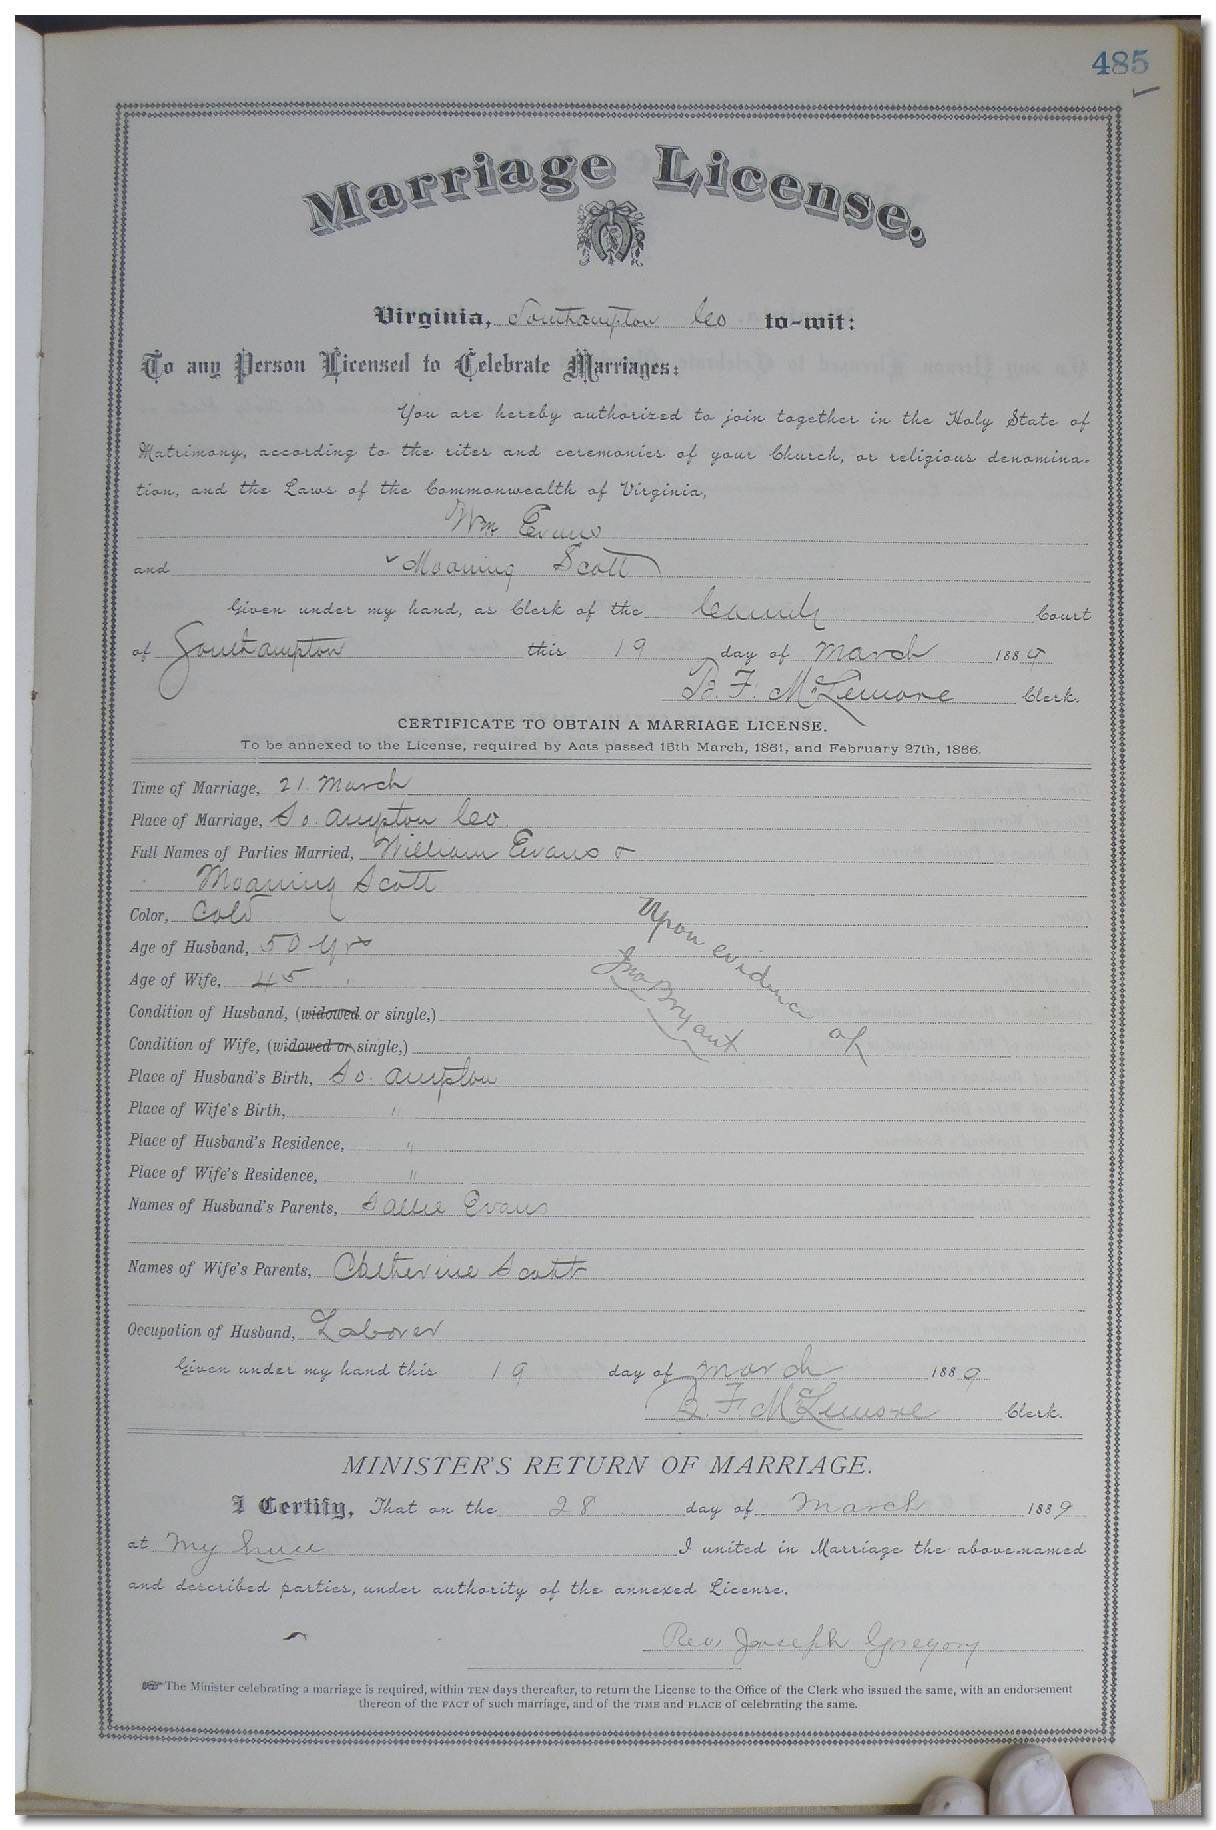 485
Marriage License.
Virginia, Southampton Co to-wit:
To any Person Licensed to Celebrate Marriages:
You are hereby authorized to join together in the Holy State of
Matrimony, according to the rites and ceremonies of your Church, or religious denomina-
tion, and the Laws of the Commonwealth of Virginia,
Wm Evans
and Moaning Scott
Given under my hand, as Clerk of the County Court
of Southampton this 19 day of March 1889
B. F. McLemore Clerk.
CERTIFICATE TO OBTAIN A MARRIAGE LICENSE.
To be annexed to the License, required by Acts passed 16th March, 1861, and February 27th, 1866.
Time of Marriage, 21. March
Place of Marriage, So. ampton Co
Full Names of Parties Married, William Evans &
Moaning Scott
Color, Cold
Age of Husband, 50 yrs
Age of Wife, 45 "
Upon evidence of
Jno Bryant
Condition of Husband, (widowed or single,)
Condition of Wife, (widowed or single,)
Place of Husband's Birth, So. ampton
Place of Wife's Birth, "
Place of Husband's Residence, "
Place of Wife's Residence, "
Names of Husband's Parents, Sallie Evans
Names of Wife's Parents, Catherine Scott
Occupation of Husband, Laborer
Given under my hand this 19 day of March 1889
B. F. McLemore Clerk.
MINISTER'S RETURN OF MARRIAGE.
I Certify, That on the 28 day of March 1889
at My I united in Marriage the above-named
and described parties, under authority of the annexed License.
Rev. Joseph Gregory
The Minister celebrating a marriage is required, within TEN days thereafter, to return the License to the Office of the Clerk who issued the same, with an endorsement
thereon of the FACT of such marriage, and of the TIME and PLACE of celebrating the same.